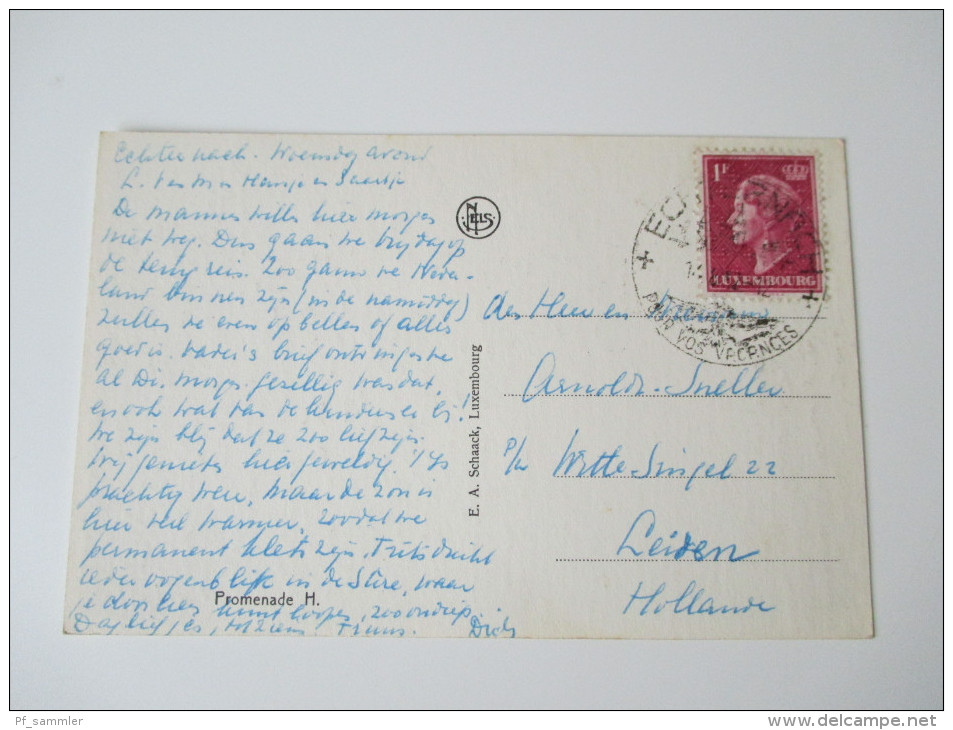 Echternach. Woensdag avond
L. en Hansje en Saartje
De mannen willen hier morgen
niet weg. Dus gaan we vrijdag op
de terugreis. Zoo gauw we Neder-
land binnen zijn (in de namiddag)
zullen we even opbellen of alles
goed is. Vader's brief ontvingen we
al Di. morgen. Gezellig was dat,
en ook wat van de kinderen er bij!
We zijn blij dat ze zoo lief zijn.
Wij genieten hier geweldig! 't Is
prachtig weer, maar de zon is
hier veel warmer, zoodat we
permanent klets zijn. Frits duikt
ieder oogenblik in de Sûre, waar
je door heen kunt loopen, zoo ondiep.
Dag lief jes, tot ziens! Truus. Dick
Promenade H.
NELS
E. A. Schaack, Luxembourg
1F
LUXEMBOURG
ECHTERNACH
POUR VOS VACANCES
den Heer en Mevrouw
Arnolds-Sneller
p/a Witte-Singel 22
Leiden
Hollande
Pf_sammler
www.delcampe.net